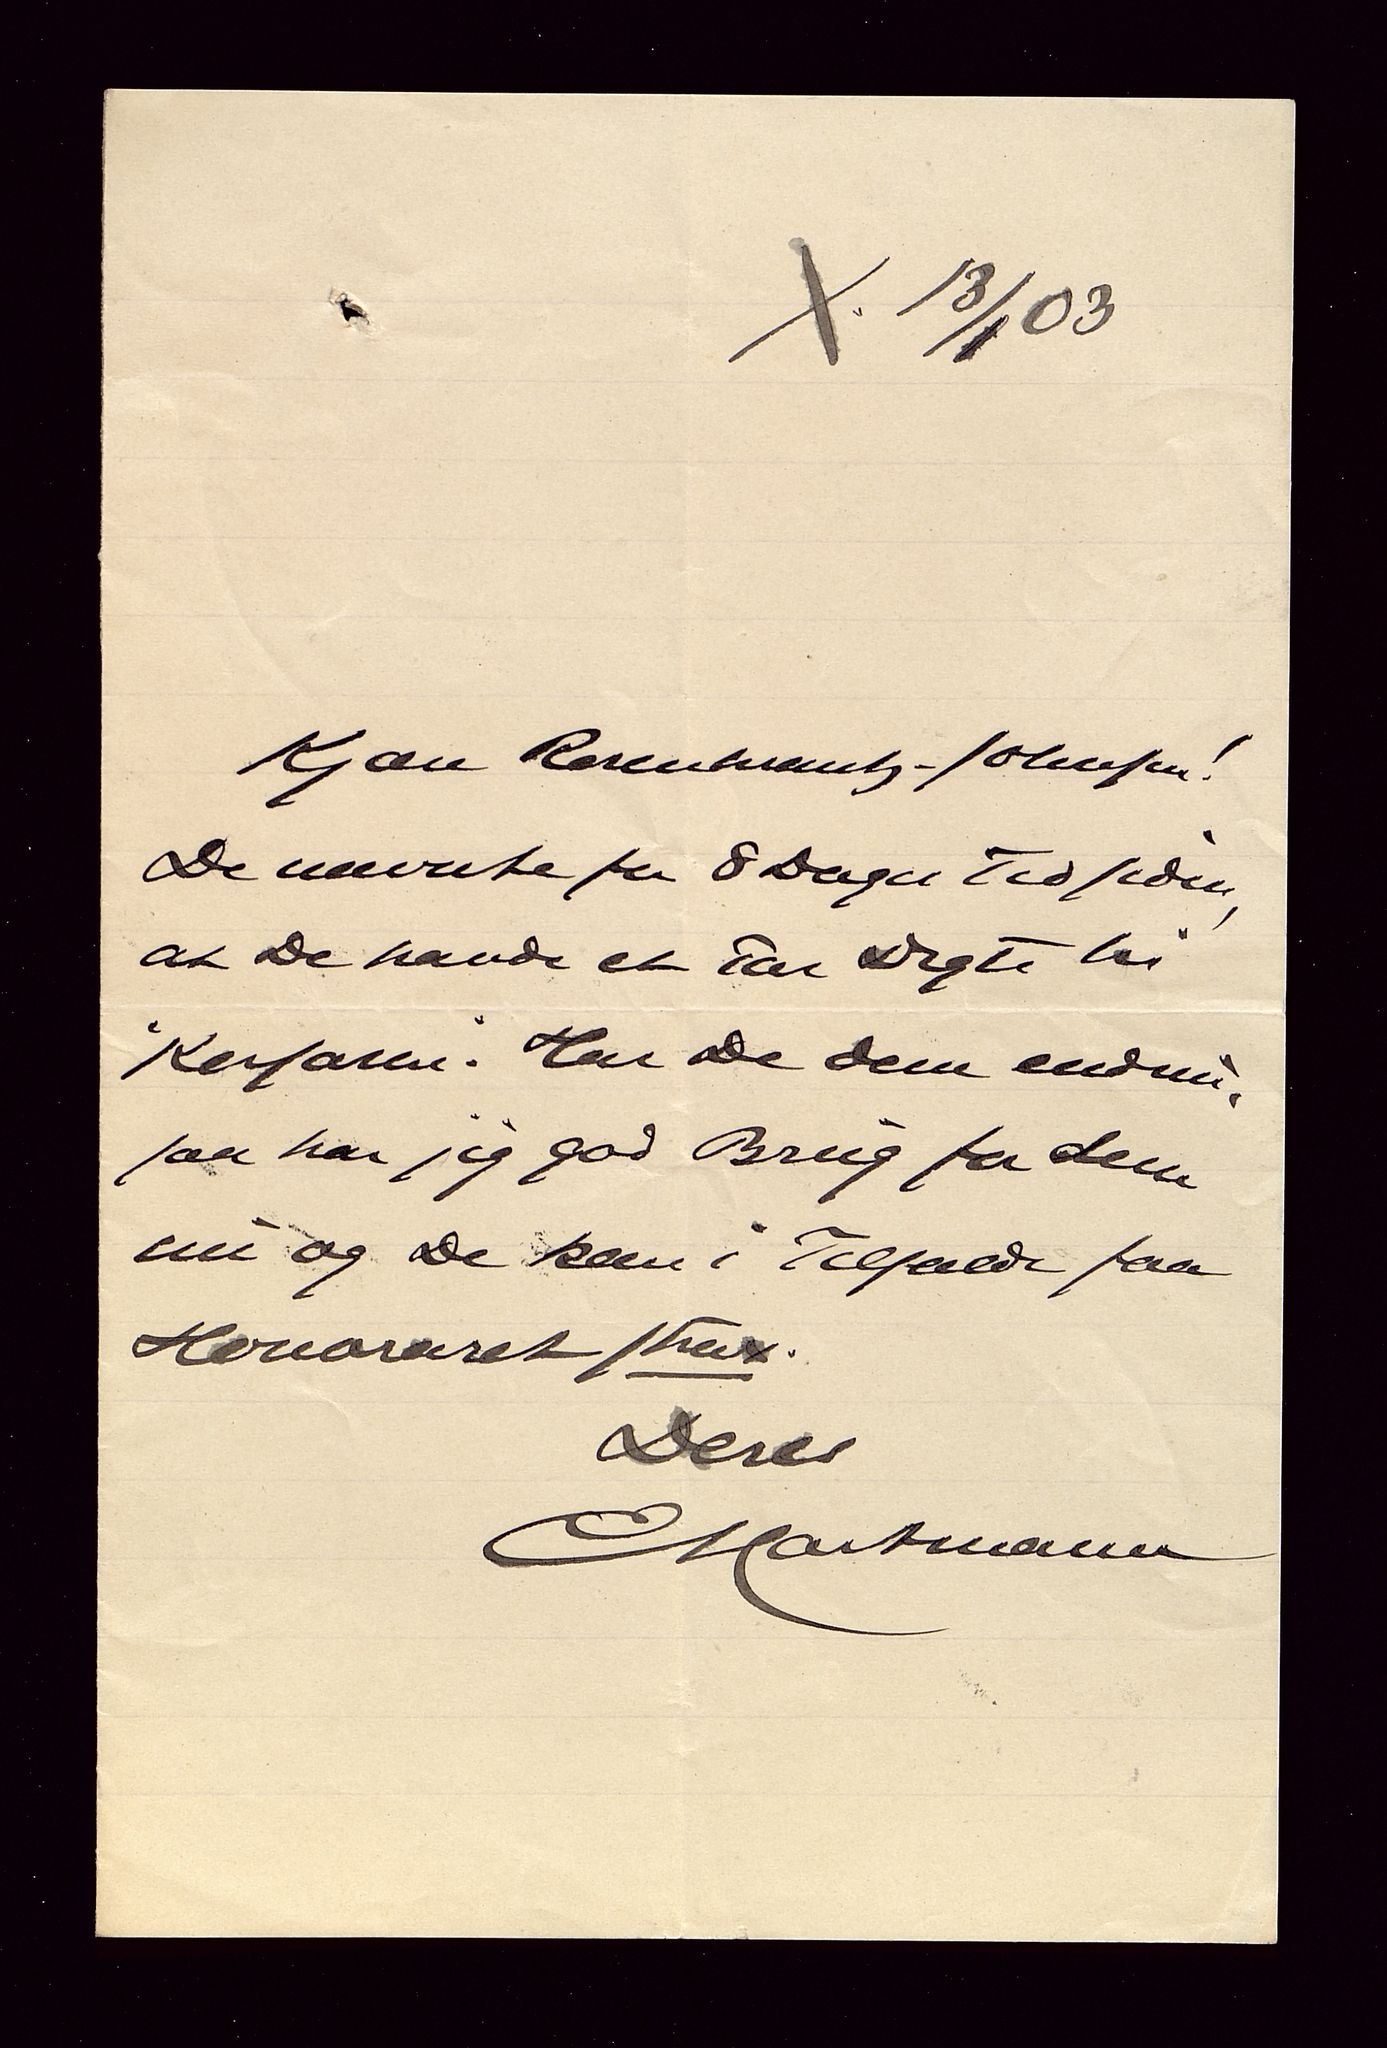 X. 13/1 03
Kjære Rosenkrantz-Johnsen!
De nævnte for 8 Dager Tid siden,
at De havde et Par Digte til
"Korsaren". Har De dem endnu,
saa har jeg god Brug for dem
nu og De kan i Tilfælde faa
Honoraret strax.
Deres
E Hartmann